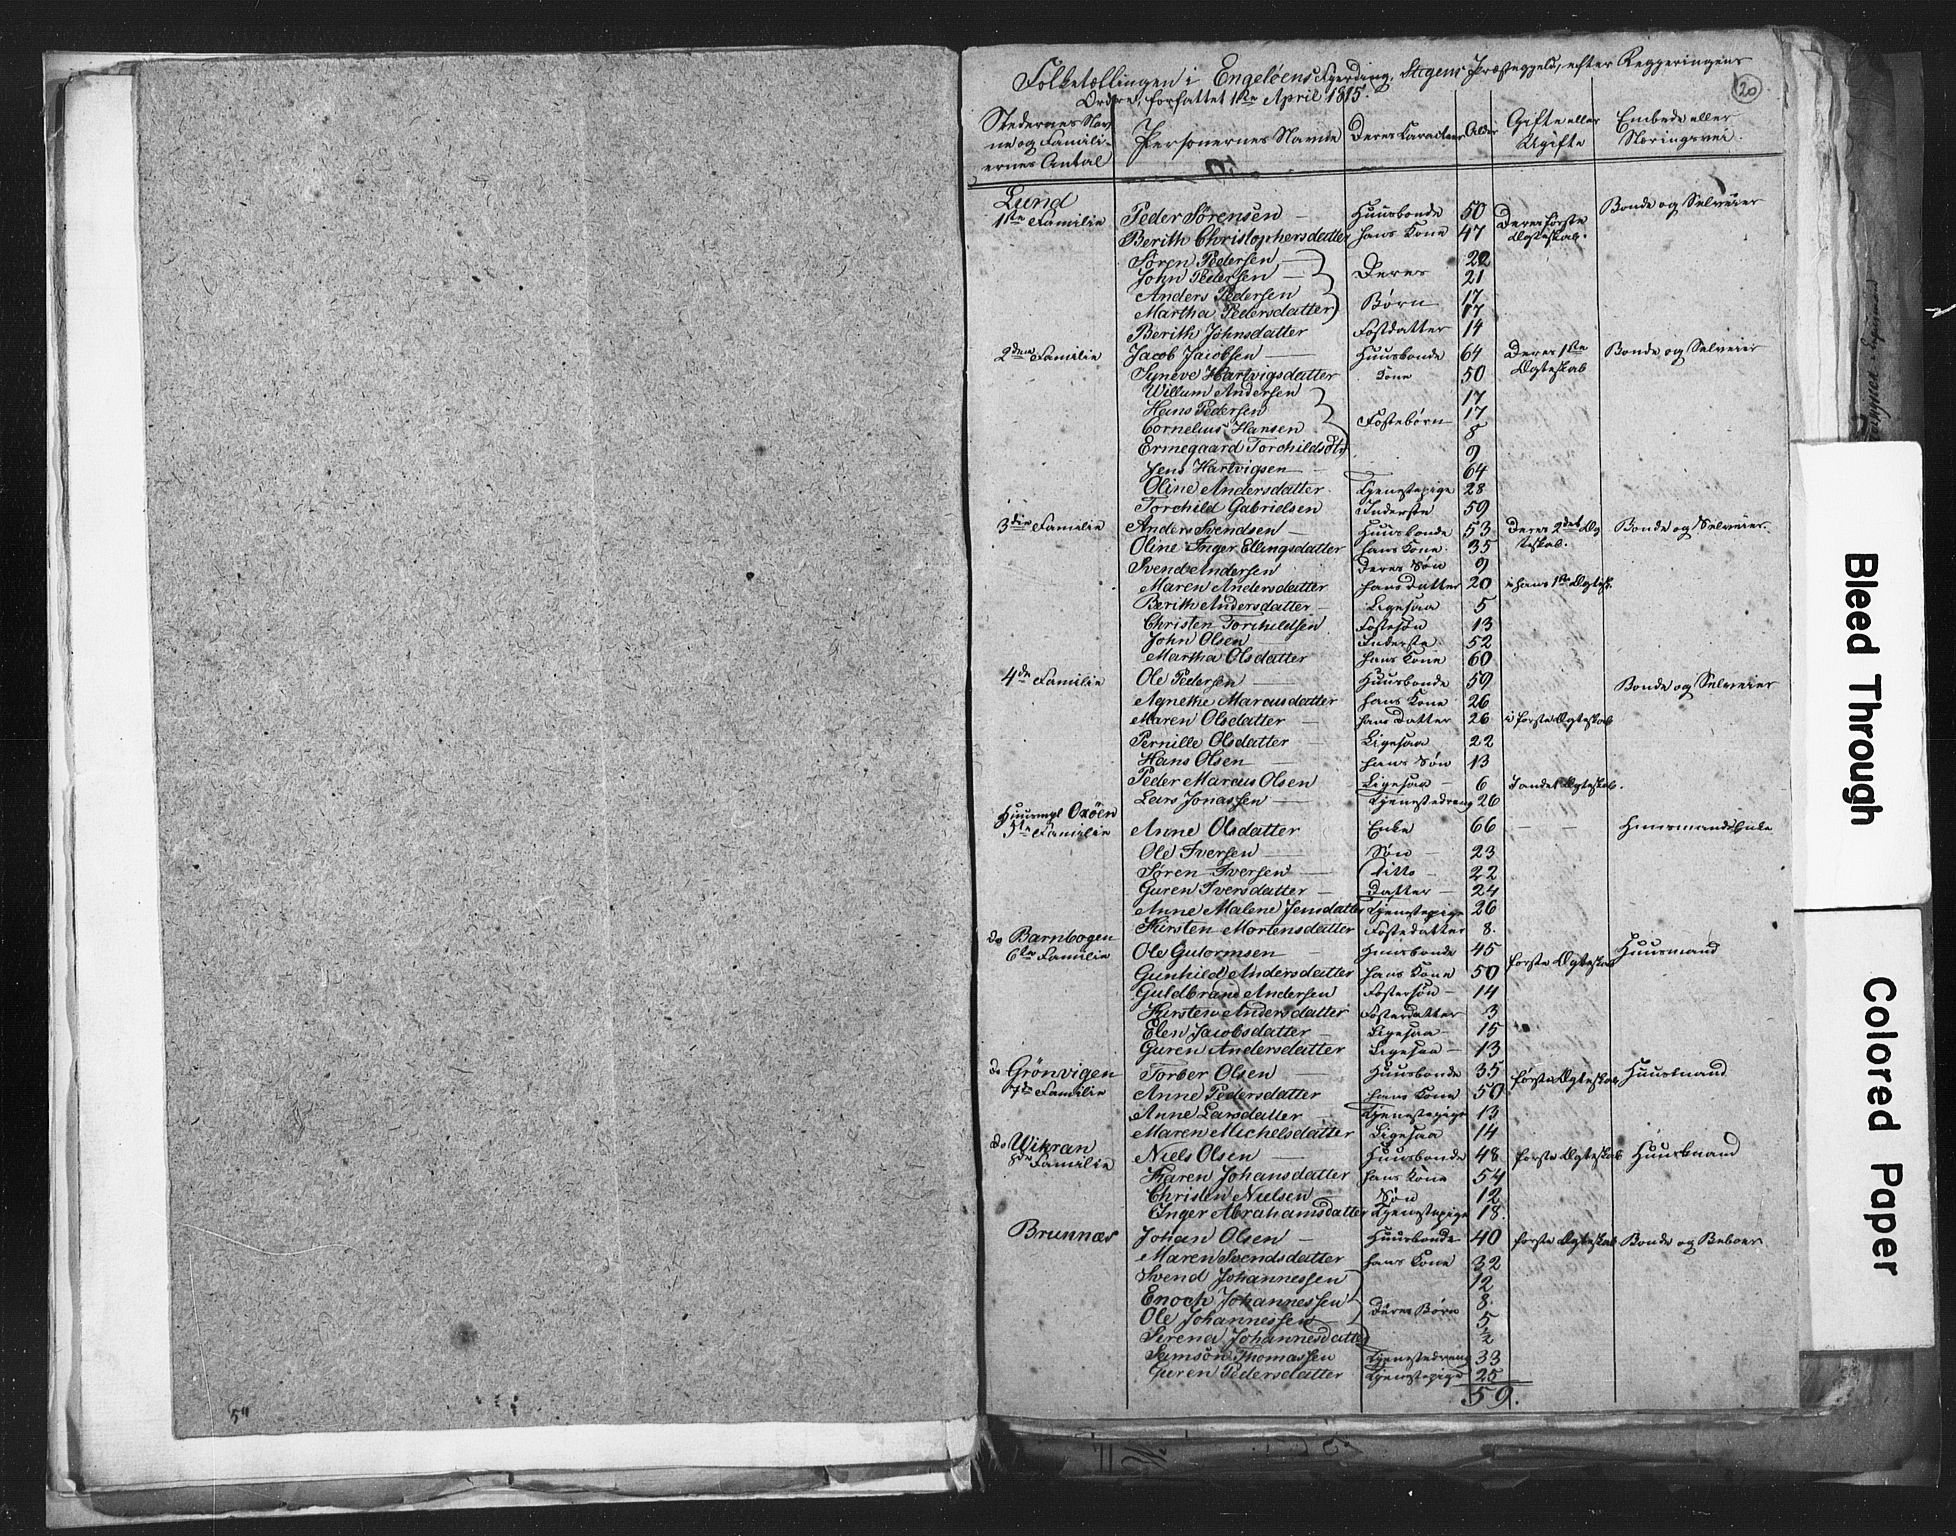 Folketællingen i Engelöens Fjerding, Stegens Præstegjeld, efter Regjeringens
Ordre, forfattet 1ste April 1815.
20
Stedernes Nav
ne og Famili-
ernes Antal
Personernes Navne
Deres Caracteer
Alder
Gifte eller
Ugifte
Embede eller
Næringsvei.
Lund
1ste Familie Peder Sörensen — Huusbonde 50 Deres første Bonde og Selveier
Berith Christophersdatter hans Kone 47 Ægteskab.
Sören Pedersen — 22
John Pedersen — Deres 21
Anders Pedersen 17
Martha Pedersdatter Børn 17
Berith Johnsdatter Fostdatter 14
2den Familie Jacob Jacobsen — Huusbonde 64 Deres 1ste Bonde og Selveier
Syneve Hartvigsdatter Kone 50 Ægteskab
Willum Andersen 17
Hans Pedersen 17
Cornelius Hansen Fostebørn 8
Ermegaard Torchildsdtr 9
Jens Hartvigsen — 64
Oline Andersdatter Tjenestepige 28
Torchild Gabrielsen Inderste 59
3die Familie Anders Svendsen — Huusbonde 53 Deres 2det Æg Bonde og Selveier.
Oline Inger Ellingsdatter hans Kone 35 teskab.
Svend Andersen Deres Søn 9
Maren Andersdatter hans datter 20 i hans 1ste Ægtesk.
Berith Andersdatter — Ligesaa 5
Christen Torchildsen Fostesøn 13
John Olsen Inderste 52
Martha Olsdatter hans Kone 60
4de Familie Ole Pedersen — Huusbonde 59 Bonde og Selveier
Agnethe Marcusdatter hans Kone 26
Maren Olsdatter — hans Datter 26 i første Ægteskab
Pernille Olsdatter — Ligesaa 22
Hans Olsen — hans Søn 13
Peder Marcus Olsen Ligesaa — 6 I andet Ægteskab.
Lars Jonassen — Tjenestedreng 26
Huusmpl Oxöen
5te Familie Anne Olsdatter Enke 66 — — Huusmands Enke
Ole Iversen — Søn — 23
Sören Iversen — Ditto — 22
Guren Iversdatter — Datter — 24
Anne Malene Jensdatter Tjenestepige 26
Kirsten Mortensdatter Fostedatter 8.
do Barnbogen
6te Familie Ole Gutormsen — Huusbonde 45 første Ægteskab Huusmand
Gunhild Andersdatter hans Kone 50
Guldbrand Andersen Fostersøn — 14
Kirsten Andersdatter Fosterdatter 3
Elen Jacobsdatter — Ligesaa — 15
Guren Andersdatter Ligesaa — 13
do Grönvigen Torber Olsen — Huusbonde 35 første Ægteskab Huusmand
7de Familie Anne Pedersdatter hans Kone 50
Anne Larsdatter — Tjenestepige 13
Maren Michelsdatter Ligesaa 14
do Wikran Niels Olsen — Huusbonde 48 første Ægteskab Huusmand
8de Familie
Karen Johansdatter hans Kone 54
Christen Nielsen — Søn 12
Inger Abrahamsdatter Tjenestepige 18.
Brunnæs Johan Olsen — Huusbonde 40 første Ægteskab Bonde og Beboer
Maren Svendsdatter hans Kone 32
Svend Johannessen 12
Enoch Johannessen 8.
Ole Johannessen deres Børn 5
Serena Johannesdatter ½
Samsön Thomassen Tjenestedreng 33
Guren Pedersdatter Tjenestepige 25
59.
Bleed Through
Colored Paper